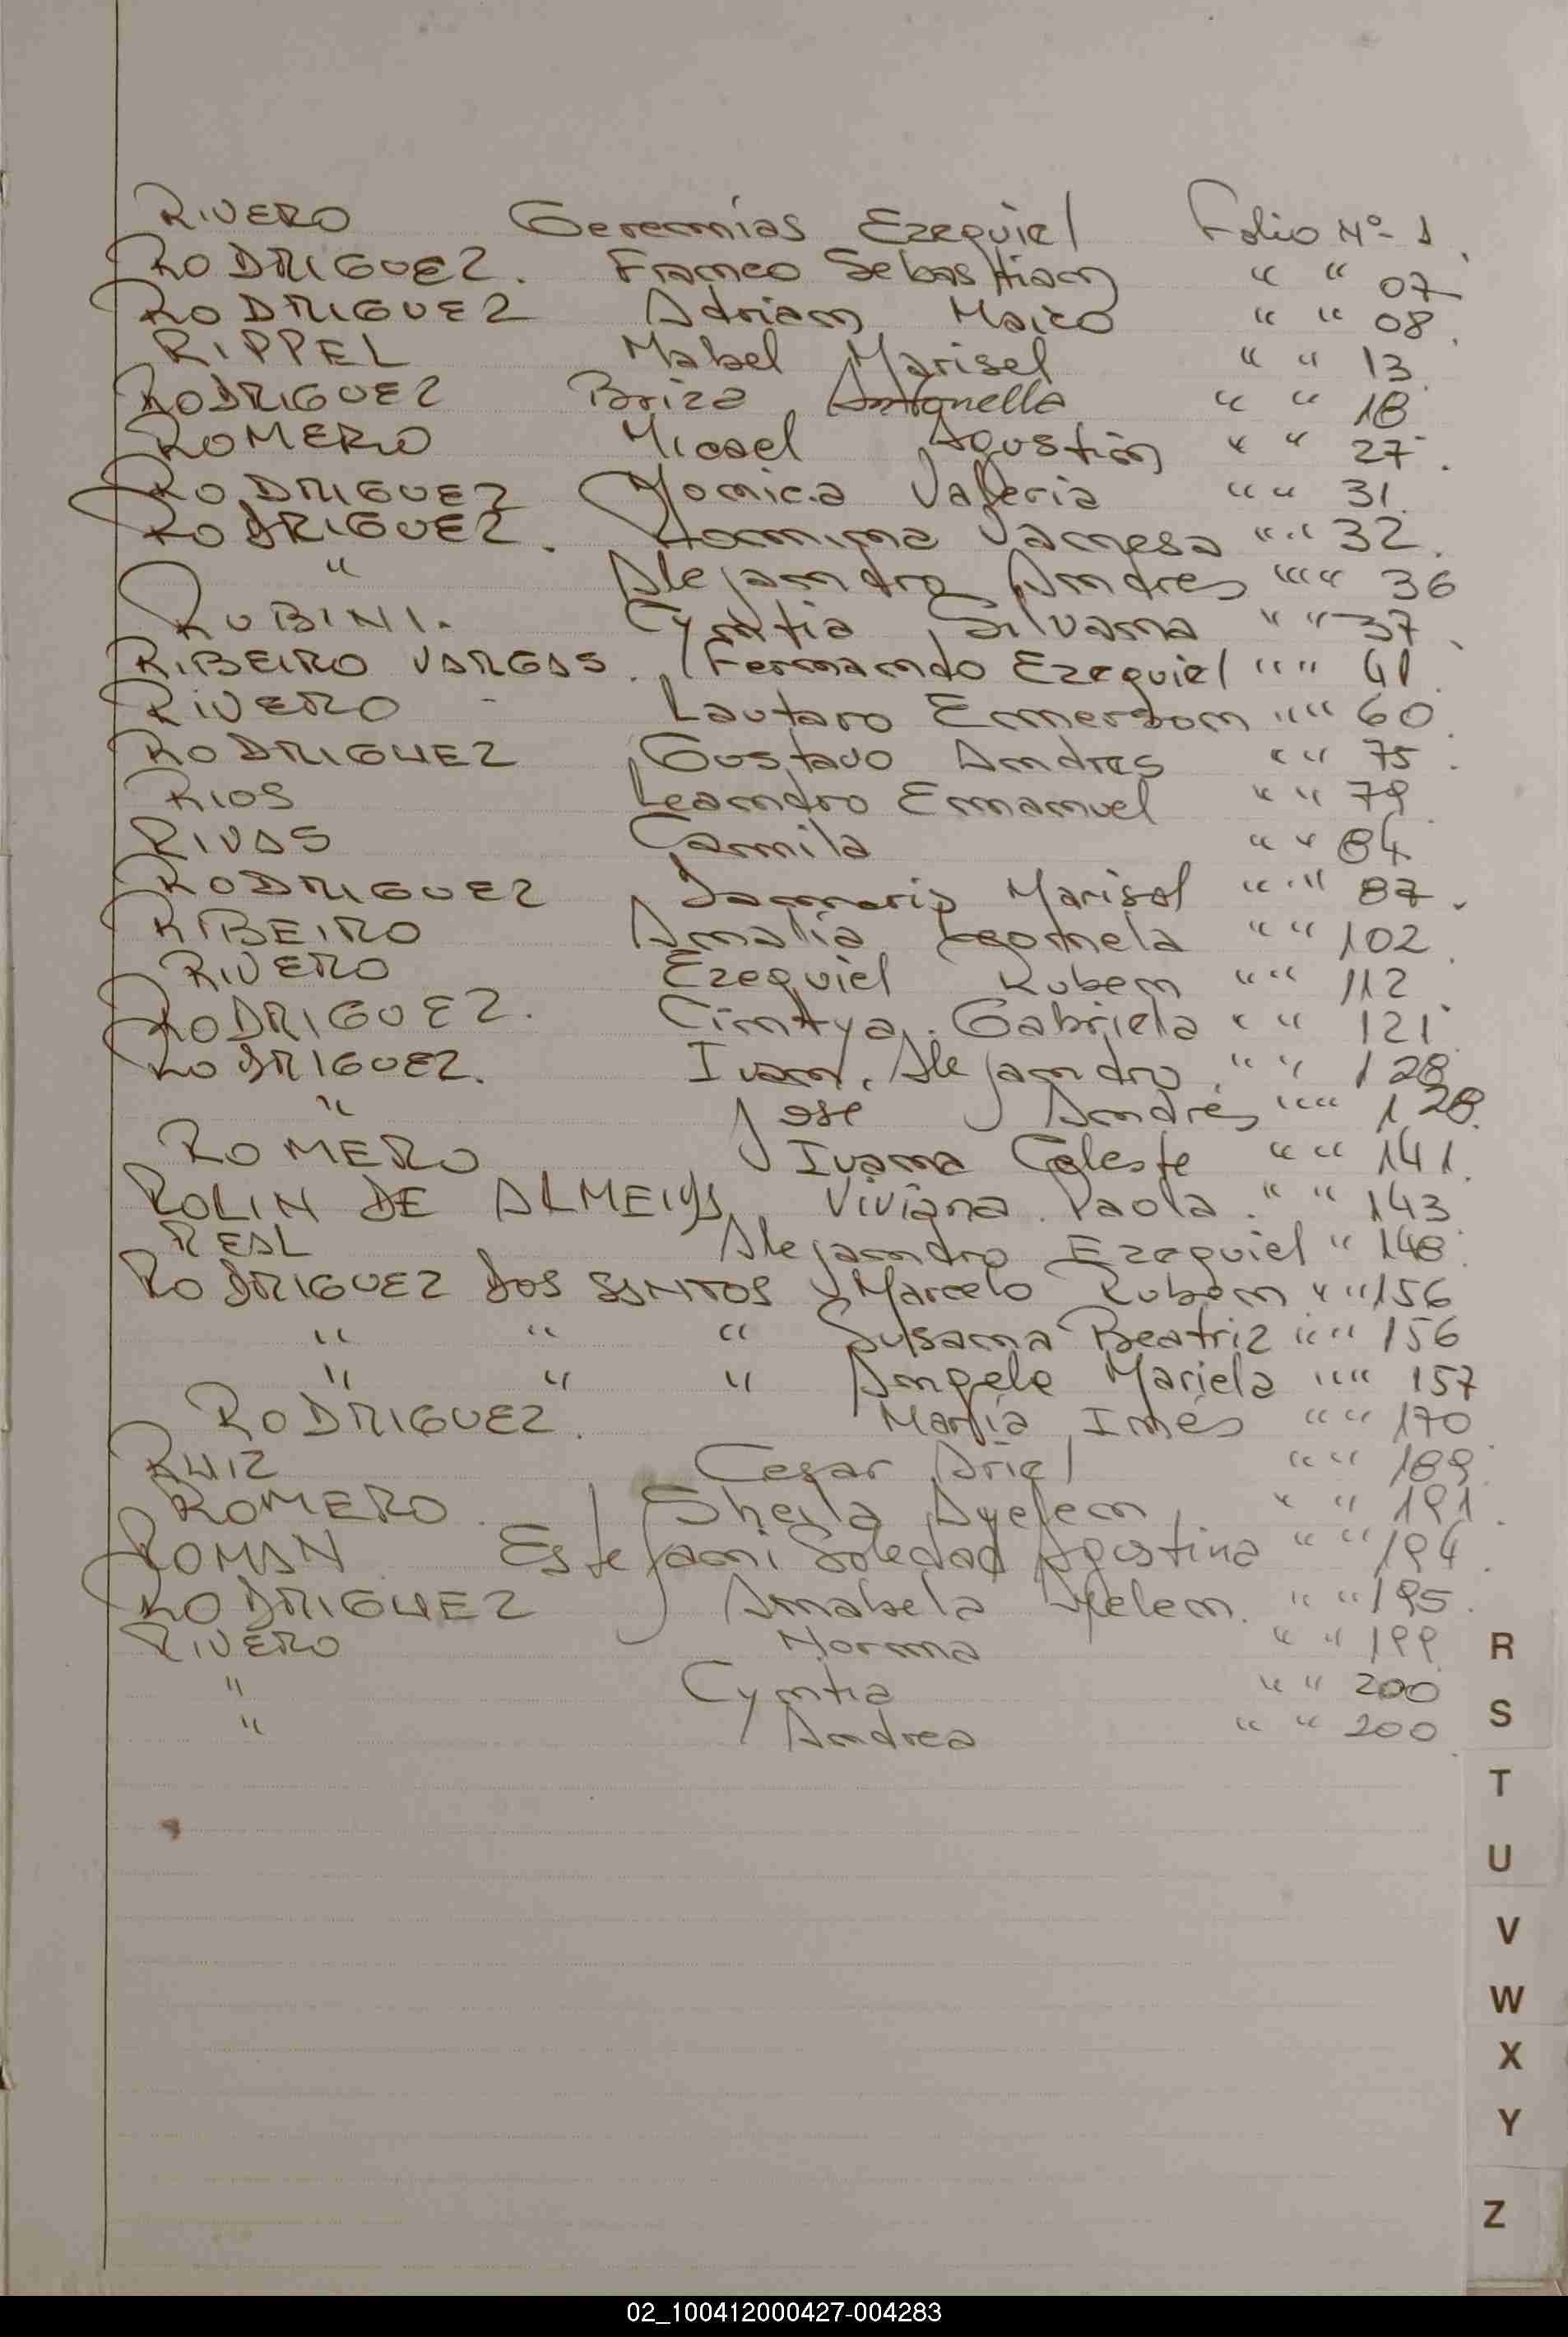 RIVERO Geremias Ezequiel Folio Nº 1.
RODRIGUEZ. Franco Sebastian " " 07
RODRIGUEZ Adrian Maico " " 08.
RIPPEL Mabel Marisel " " 13.
RODRIGUEZ Briza Antonella " " 18
ROMERO Micael Agustin " " 27.
RODRIGUEZ Monica Valeria " " 31.
RODRIGUEZ. Romina Vanesa " " 32.
" Alejandro Andres " " 36
RUBINI. Cyntia Silvana " " 37.
RIBEIRO VARGAS. Fernando Ezequiel " " 41.
RIVERO - Lautaro Emmerson " " 60.
RODRIGUEZ Gustavo Andres " " 75.
RIOS Leandro Emmanuel " " 79.
RIVAS Camila " " 84
RODRIGUEZ Dammaris Marisol " " 87.
RIBEIRO Amalia Leonela " " 102.
RIVERO Ezequiel Ruben " " 112.
RODRIGUEZ. Cintya. Gabriela " " 121.
RODRIGUEZ. Ivan. Alejandro. " " 128
" José Andrés " " 128.
ROMERO Ivana Celeste " " 141.
ROLIN DE ALMEIDA Viviana. Paola. " " 143
REAL Alejandro Ezequiel " 148.
RODRIGUEZ DOS SANTOS Marcelo Ruben " " 156
" " " Susana Beatriz " " 156
" " " Angela Mariela " " 157
RODRIGUEZ. María Inés " " 170
RUIZ Cesar Ariel " " 189.
ROMERO. Sheila Ayelen " " 191.
ROMAN Estefani Soledad Agustina " " 194.
RODRIGUEZ Anabela Ayelen. " " 195.
RIVERO Norma " " 199.
" Cyntia " " 200
" Andrea " " 200.
R
S
T
U
V
W
X
Y
Z
02_100412000427-004283